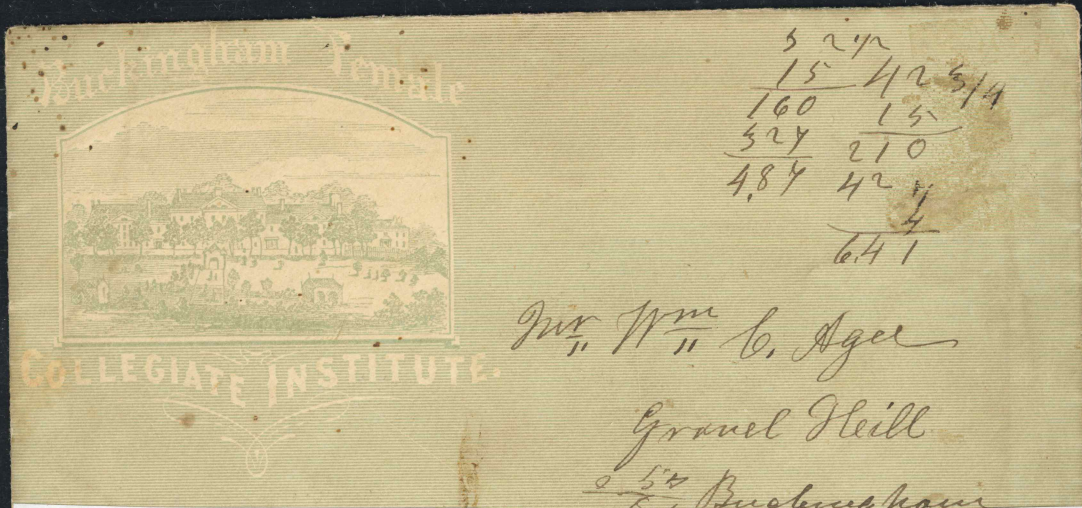 Buckingham Female
COLLEGIATE INSTITUTE.
3 2 1/2
15
160
327
4.87
42 3/4
15
210
42
4
6.41
Mr Wm C. Agee
Gravel Hill
Buckingham